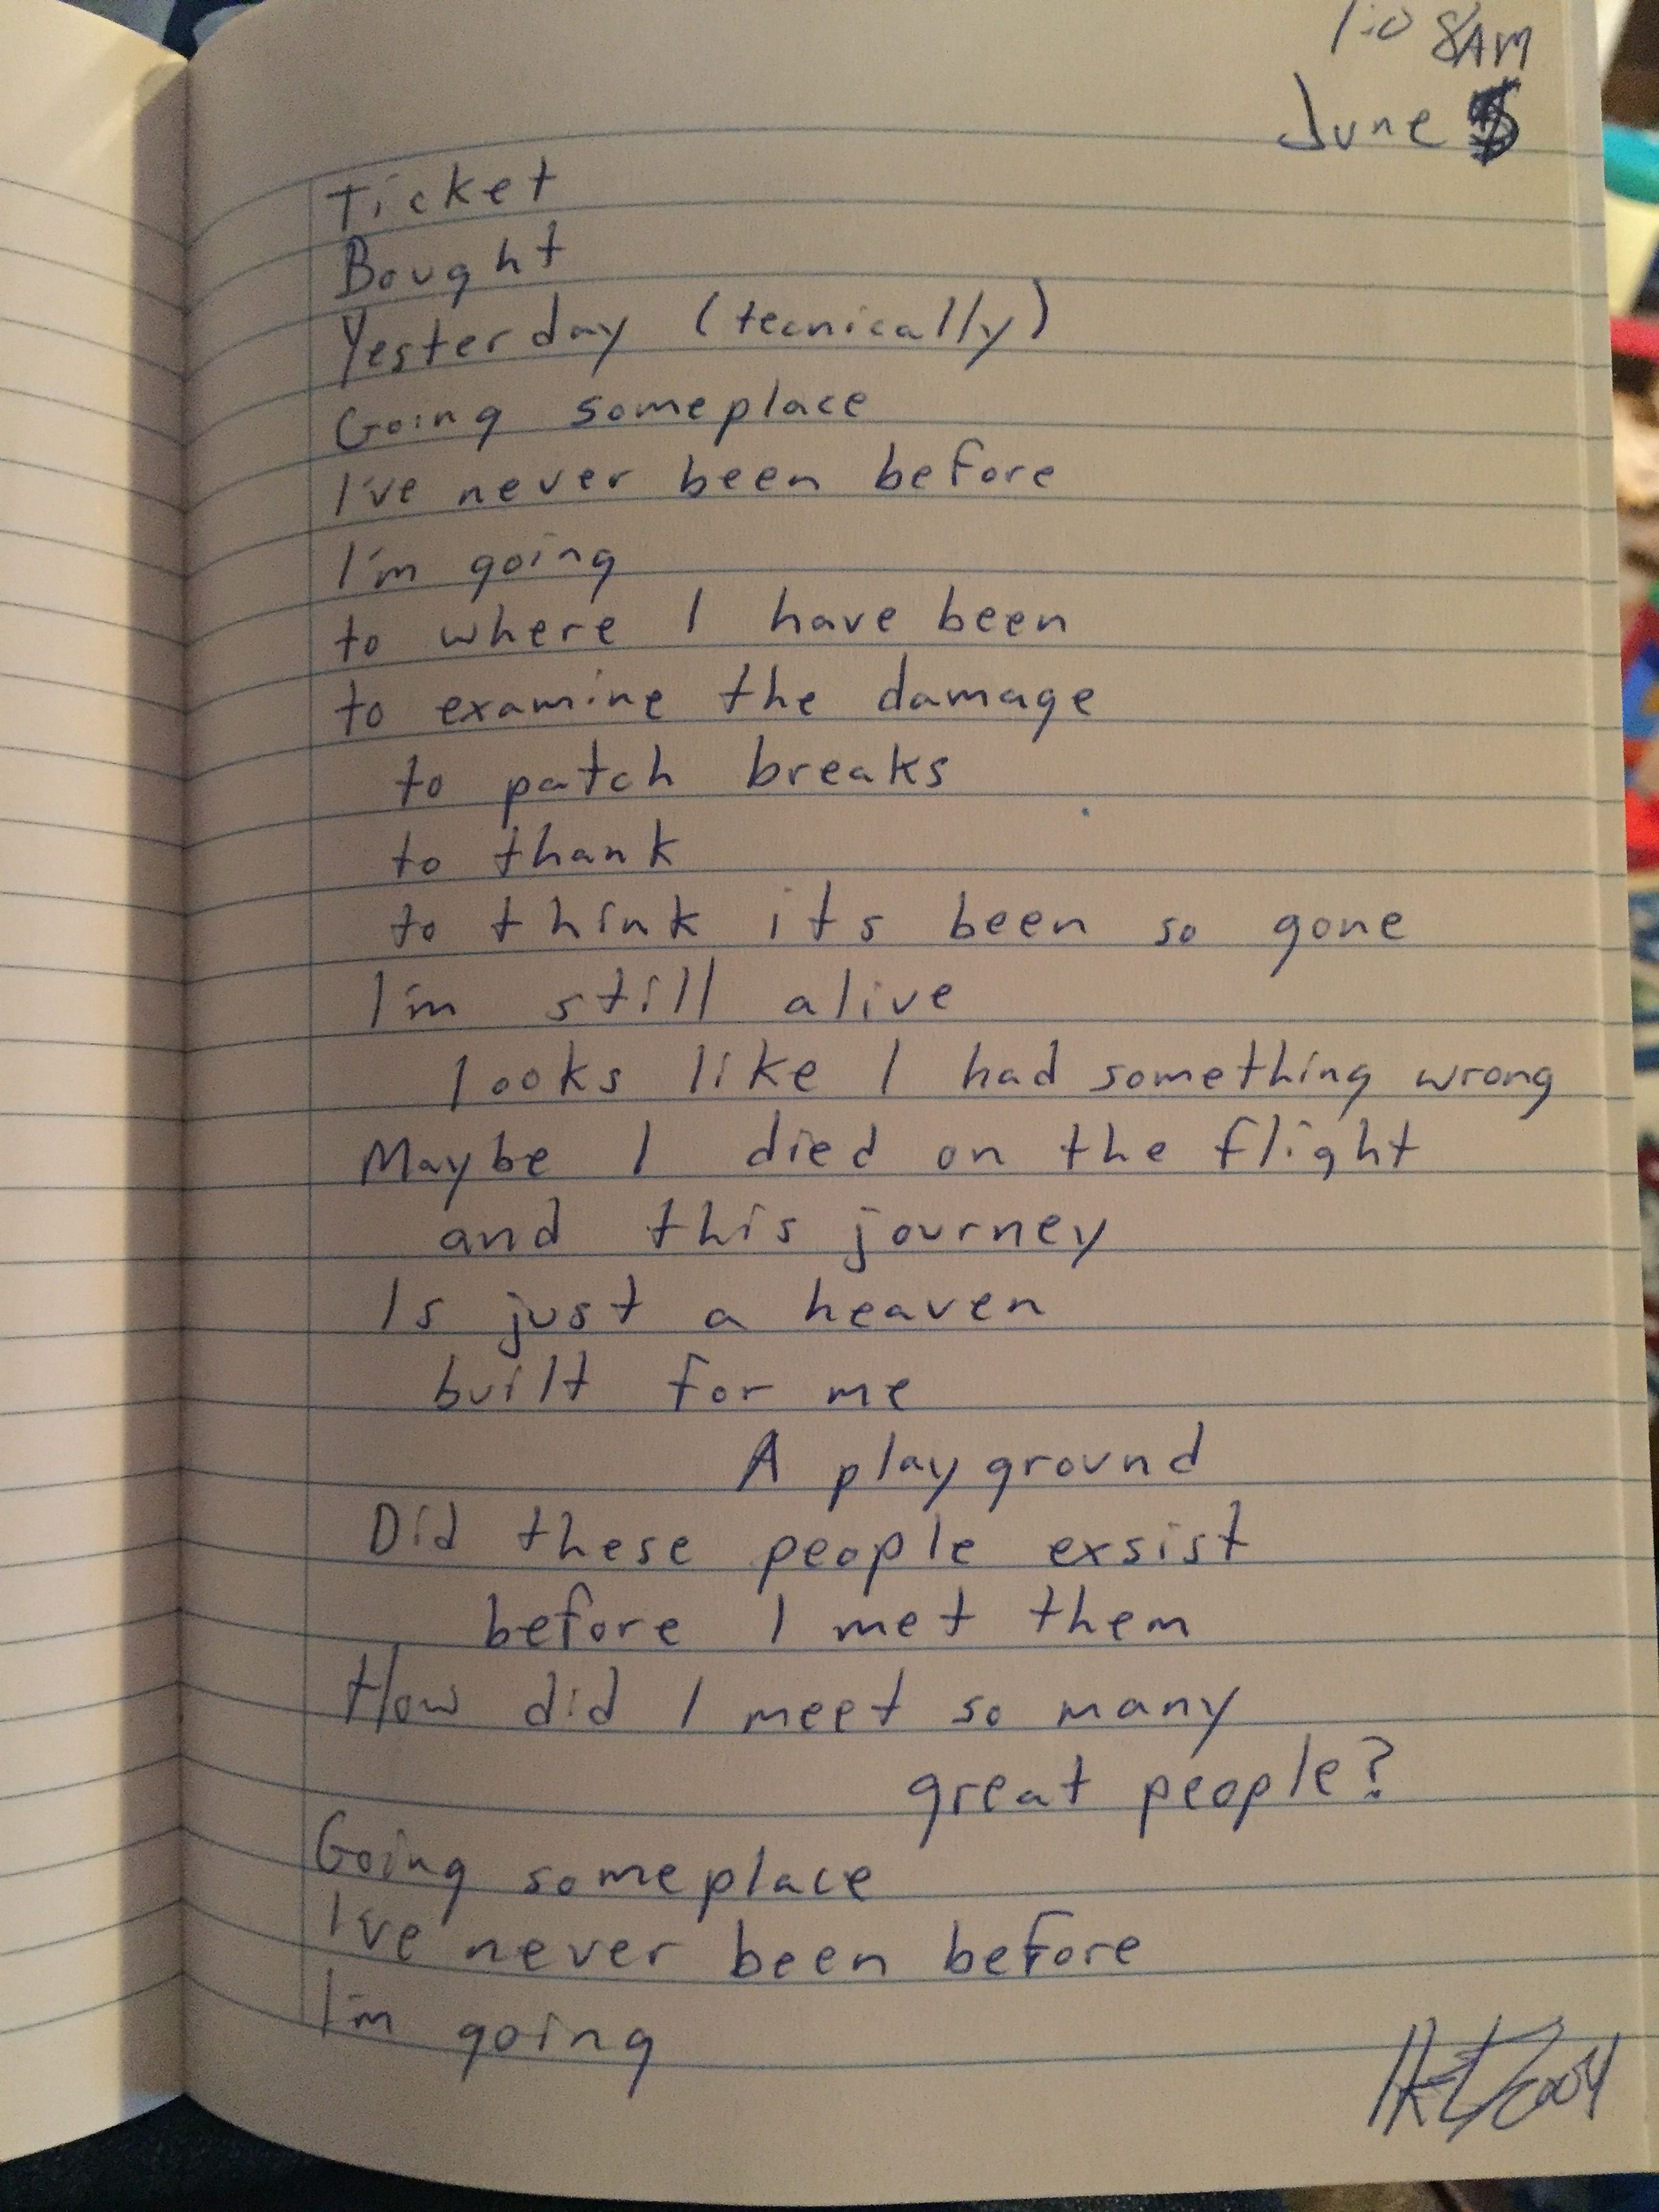 1:08AM
June
Ticket
Bought
Yesterday (tecnically)
Going someplace
I've never been before
I'm going
to where I have been
to examine the damage
to patch breaks
to thank
to think its been so gone
I'm still alive
looks like I had something wrong
Maybe I died on the flight
and this journey
Is just a heaven
built for me
A playground
Did these people exsist
before I met them
How did I meet so many
great people?
Going someplace
I've never been before
I'm going